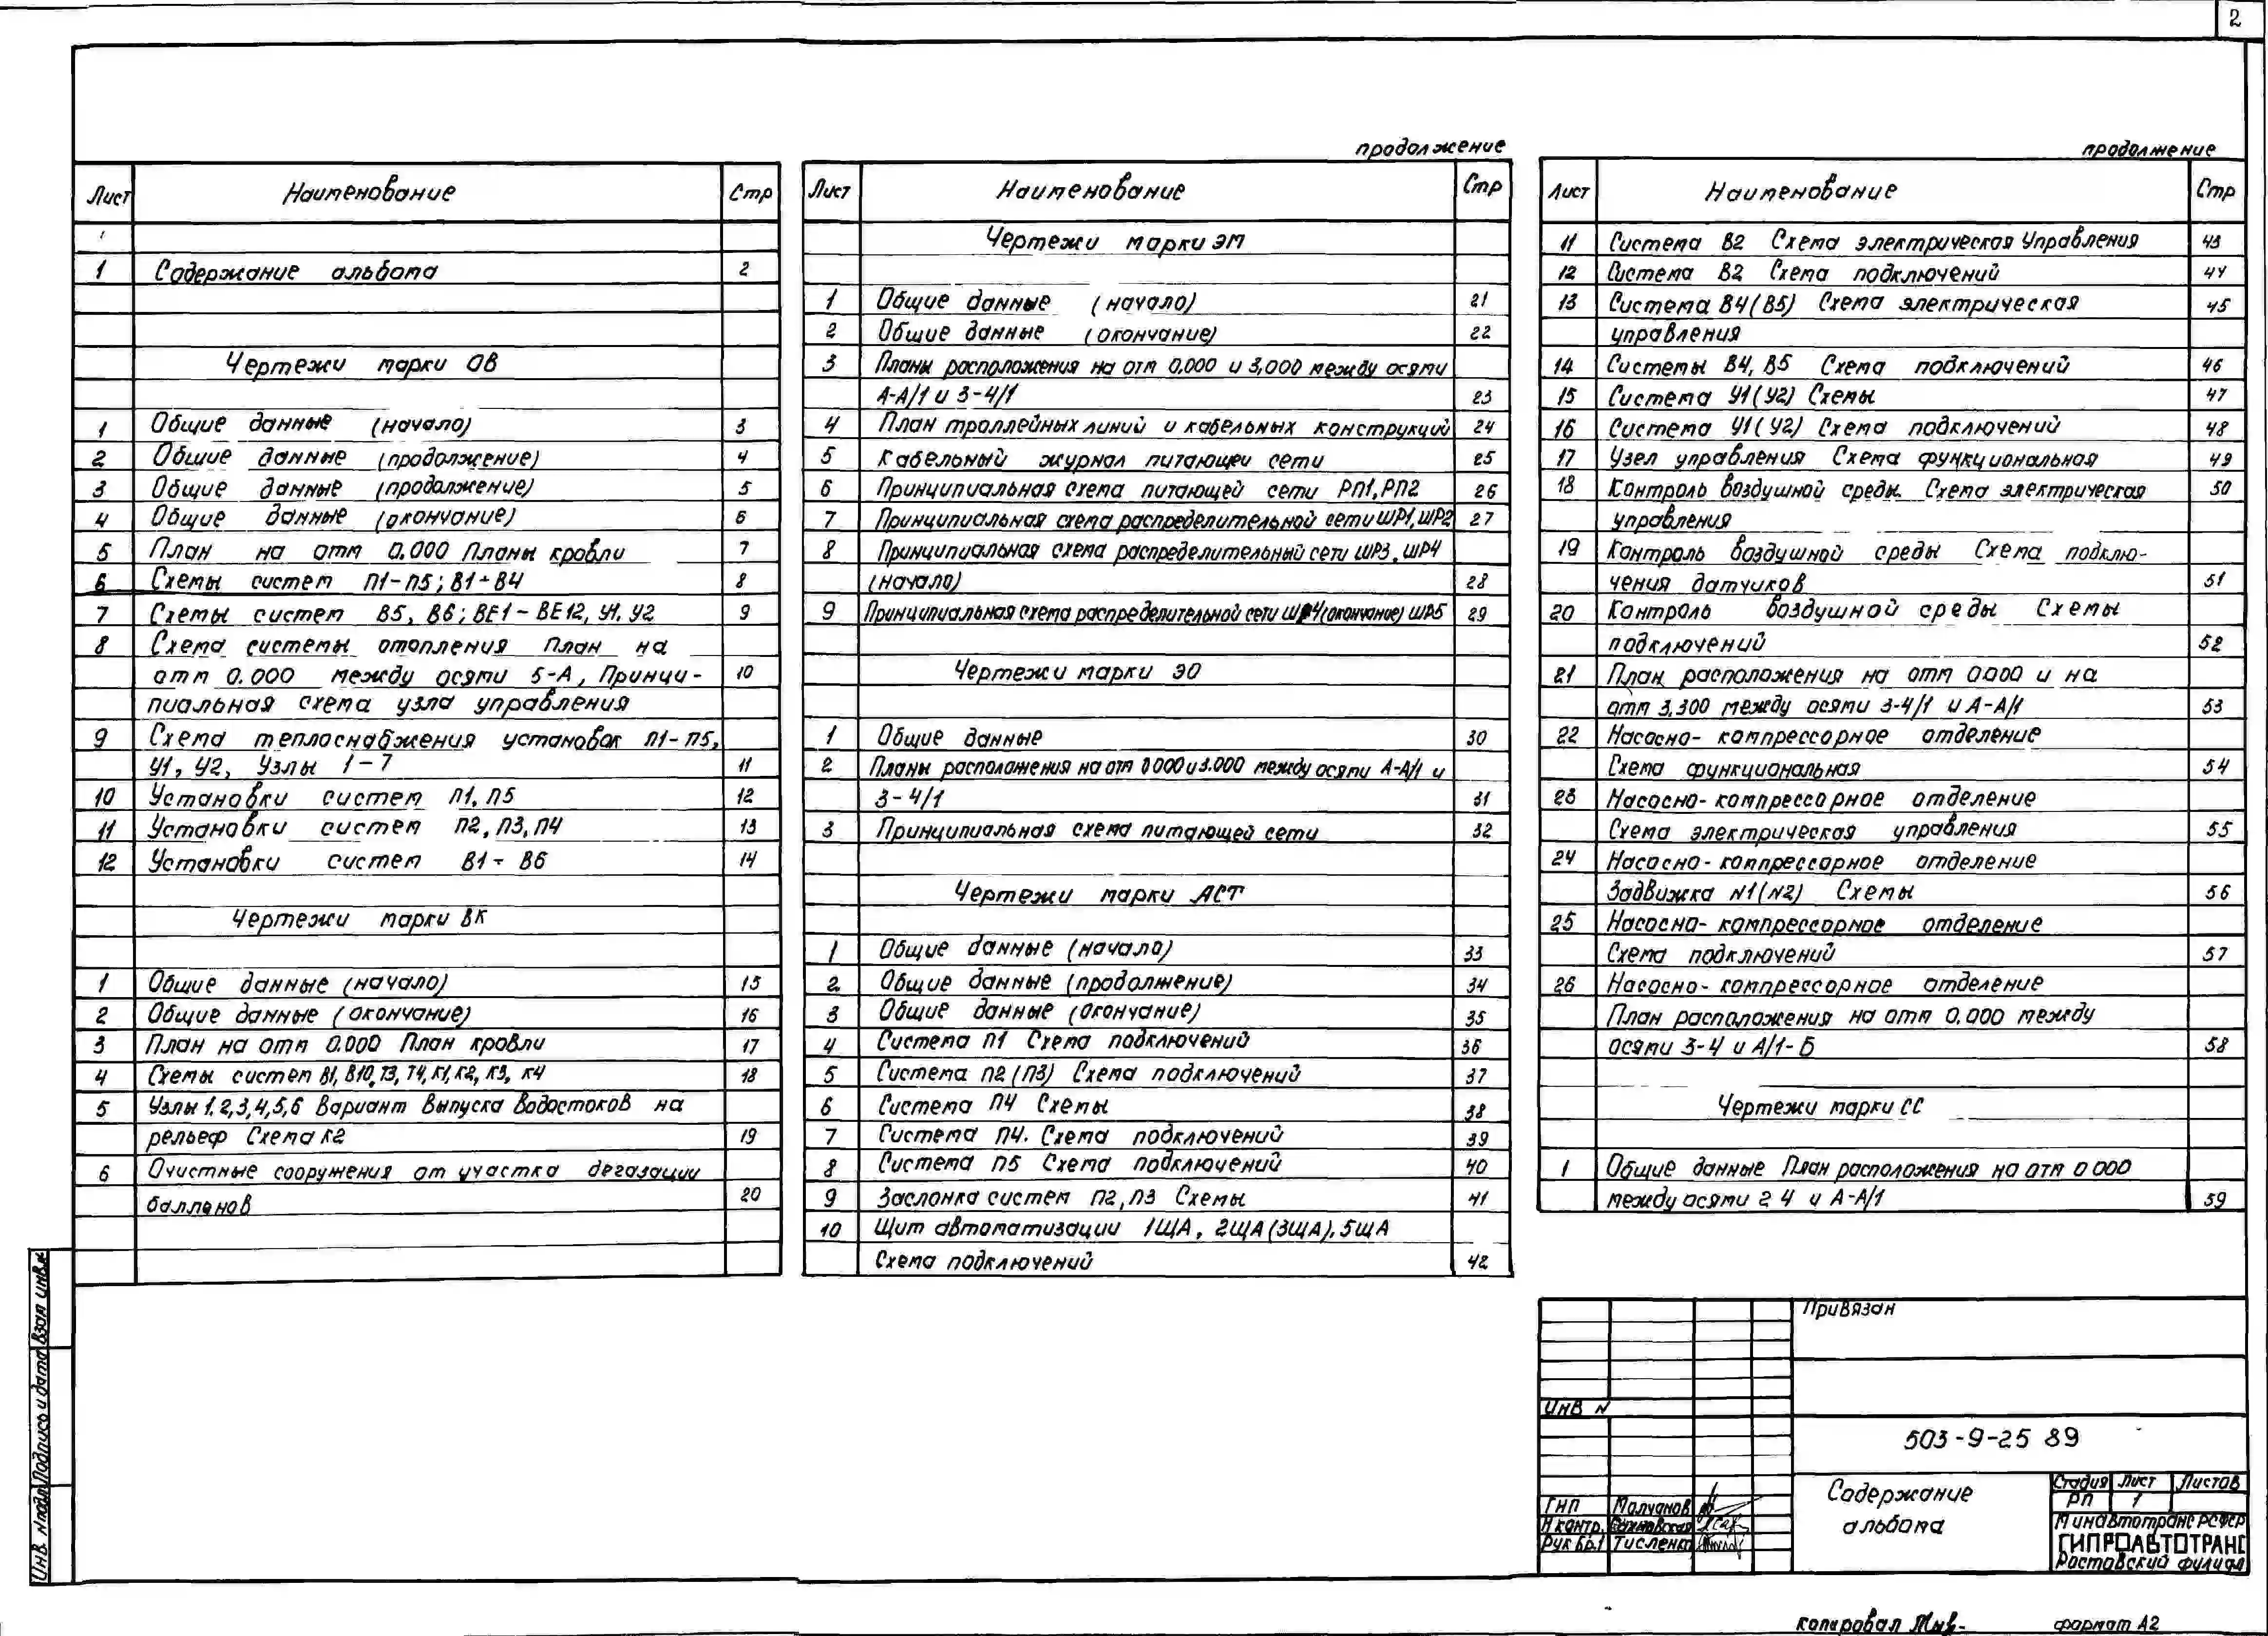 2
Лист Наименование Стр
1 Содержание альбома 2
Чертежи марки ОВ
1 Общие данные (начало) 3
2 Общие данные (продолжение) 4
3 Общие данные (продолжение) 5
4 Общие данные (окончание) 6
5 План на отм 0.000 Планы кровли 7
6 Схемы систем П1-П5; В1÷В4 8
7 Схемы систем В5, В6; ВЕ1-ВЕ12, У1, У2 9
8 Схема системы отопления План на
отм 0.000 между осями 5-А, Принци- 10
пиальная схема узла управления
9 Схема теплоснабжения установок П1-П5,
У1, У2, Узлы 1-7 11
10 Установки систем П1, П5 12
11 Установки систем П2, П3, П4 13
12 Установки систем В1÷В6 14
Чертежи марки ВК
1 Общие данные (начало) 15
2 Общие данные (окончание) 16
3 План на отм 0.000 План кровли 17
4 Схемы систем В1, В10, Т3, Т4, К1, К2, К3, К4 18
5 Узлы 1,2,3,4,5,6 Вариант выпуска водостоков на
рельеф Схема К2 19
6 Очистные сооружения от участка дегазации
баллонов 20
продолжение
Лист Наименование Стр
Чертежи марки ЭМ
1 Общие данные (начало) 21
2 Общие данные (окончание) 22
3 Планы расположения на отм 0,000 и 3,000 между осями
А-А/1 и 3-4/1 23
4 План троллейных линий и кабельных конструкций 24
5 Кабельный журнал питающей сети 25
6 Принципиальная схема питающей сети РП1, РП2 26
7 Принципиальная схема распределительной сети ШР1, ШР2 27
8 Принципиальная схема распределительный сети ШР3, ШР4
(начало) 28
9 Принципиальная схема распределительной сети ШР4 (окончание) ШР5 29
Чертежи марки ЭО
1 Общие данные 30
2 Планы расположения на отм 0 000 и 3.000 между осями А-А/1 и
3-4/1 31
3 Принципиальная схема питающей сети 32
Чертежи марки АСТ
1 Общие данные (начало) 33
2 Общие данные (продолжение) 34
3 Общие данные (окончание) 35
4 Система П1 Схема подключений 36
5 Система П2 (П3) Схема подключений 37
6 Система П4 Схемы 38
7 Система П4. Схема подключений 39
8 Система П5 Схема подключений 40
9 Заслонка систем П2, П3 Схемы 41
10 Щит автоматизации 1ЩА, 2ЩА (3ЩА), 5ЩА
Схема подключений 42
продолжение
Лист Наименование Стр
11 Система В2 Схема электрическая Управления 43
12 Система В2 Схема подключений 44
13 Система В4 (В5) Схема электрическая 45
управления
14 Системы В4, В5 Схема подключений 46
15 Система У1 (У2) Схемы 47
16 Система У1 (У2) Схема подключений 48
17 Узел управления Схема функциональная 49
18 Контроль воздушной среды. Схема электрическая 50
управления
19 Контроль воздушной среды Схема подклю-
чения датчиков 51
20 Контроль воздушной среды Схемы
подключений 52
21 План расположения на отм 0.000 и на
отм 3,300 между осями 3-4/1 и А-А/1 53
22 Насосно-компрессорное отделение
Схема функциональная 54
23 Насосно-компрессорное отделение
Схема электрическая управления 55
24 Насосно-компрессорное отделение
Задвижка N1 (N2) Схемы 56
25 Насосно-компрессорное отделение
Схема подключений 57
26 Насосно-компрессорное отделение
План расположения на отм 0.000 между
осями 3-4 и А/1-Б 58
Чертежи марки СС
1 Общие данные План расположения на отм 0 000
между осями 2 4 и А-А/1 59
Взам инв.N
Подпись и дата
Инв. N подл
Привязан
Инв N
503-9-25 89
ГИП Молчанов
Н контр.
Рук бр.1 Тисленко
Содержание
альбома
Стадия Лист Листов
РП 1
Минавтотранс РСФСР
ГИПРОАВТОТРАНС
Ростовский филиал
копировал
формат А2